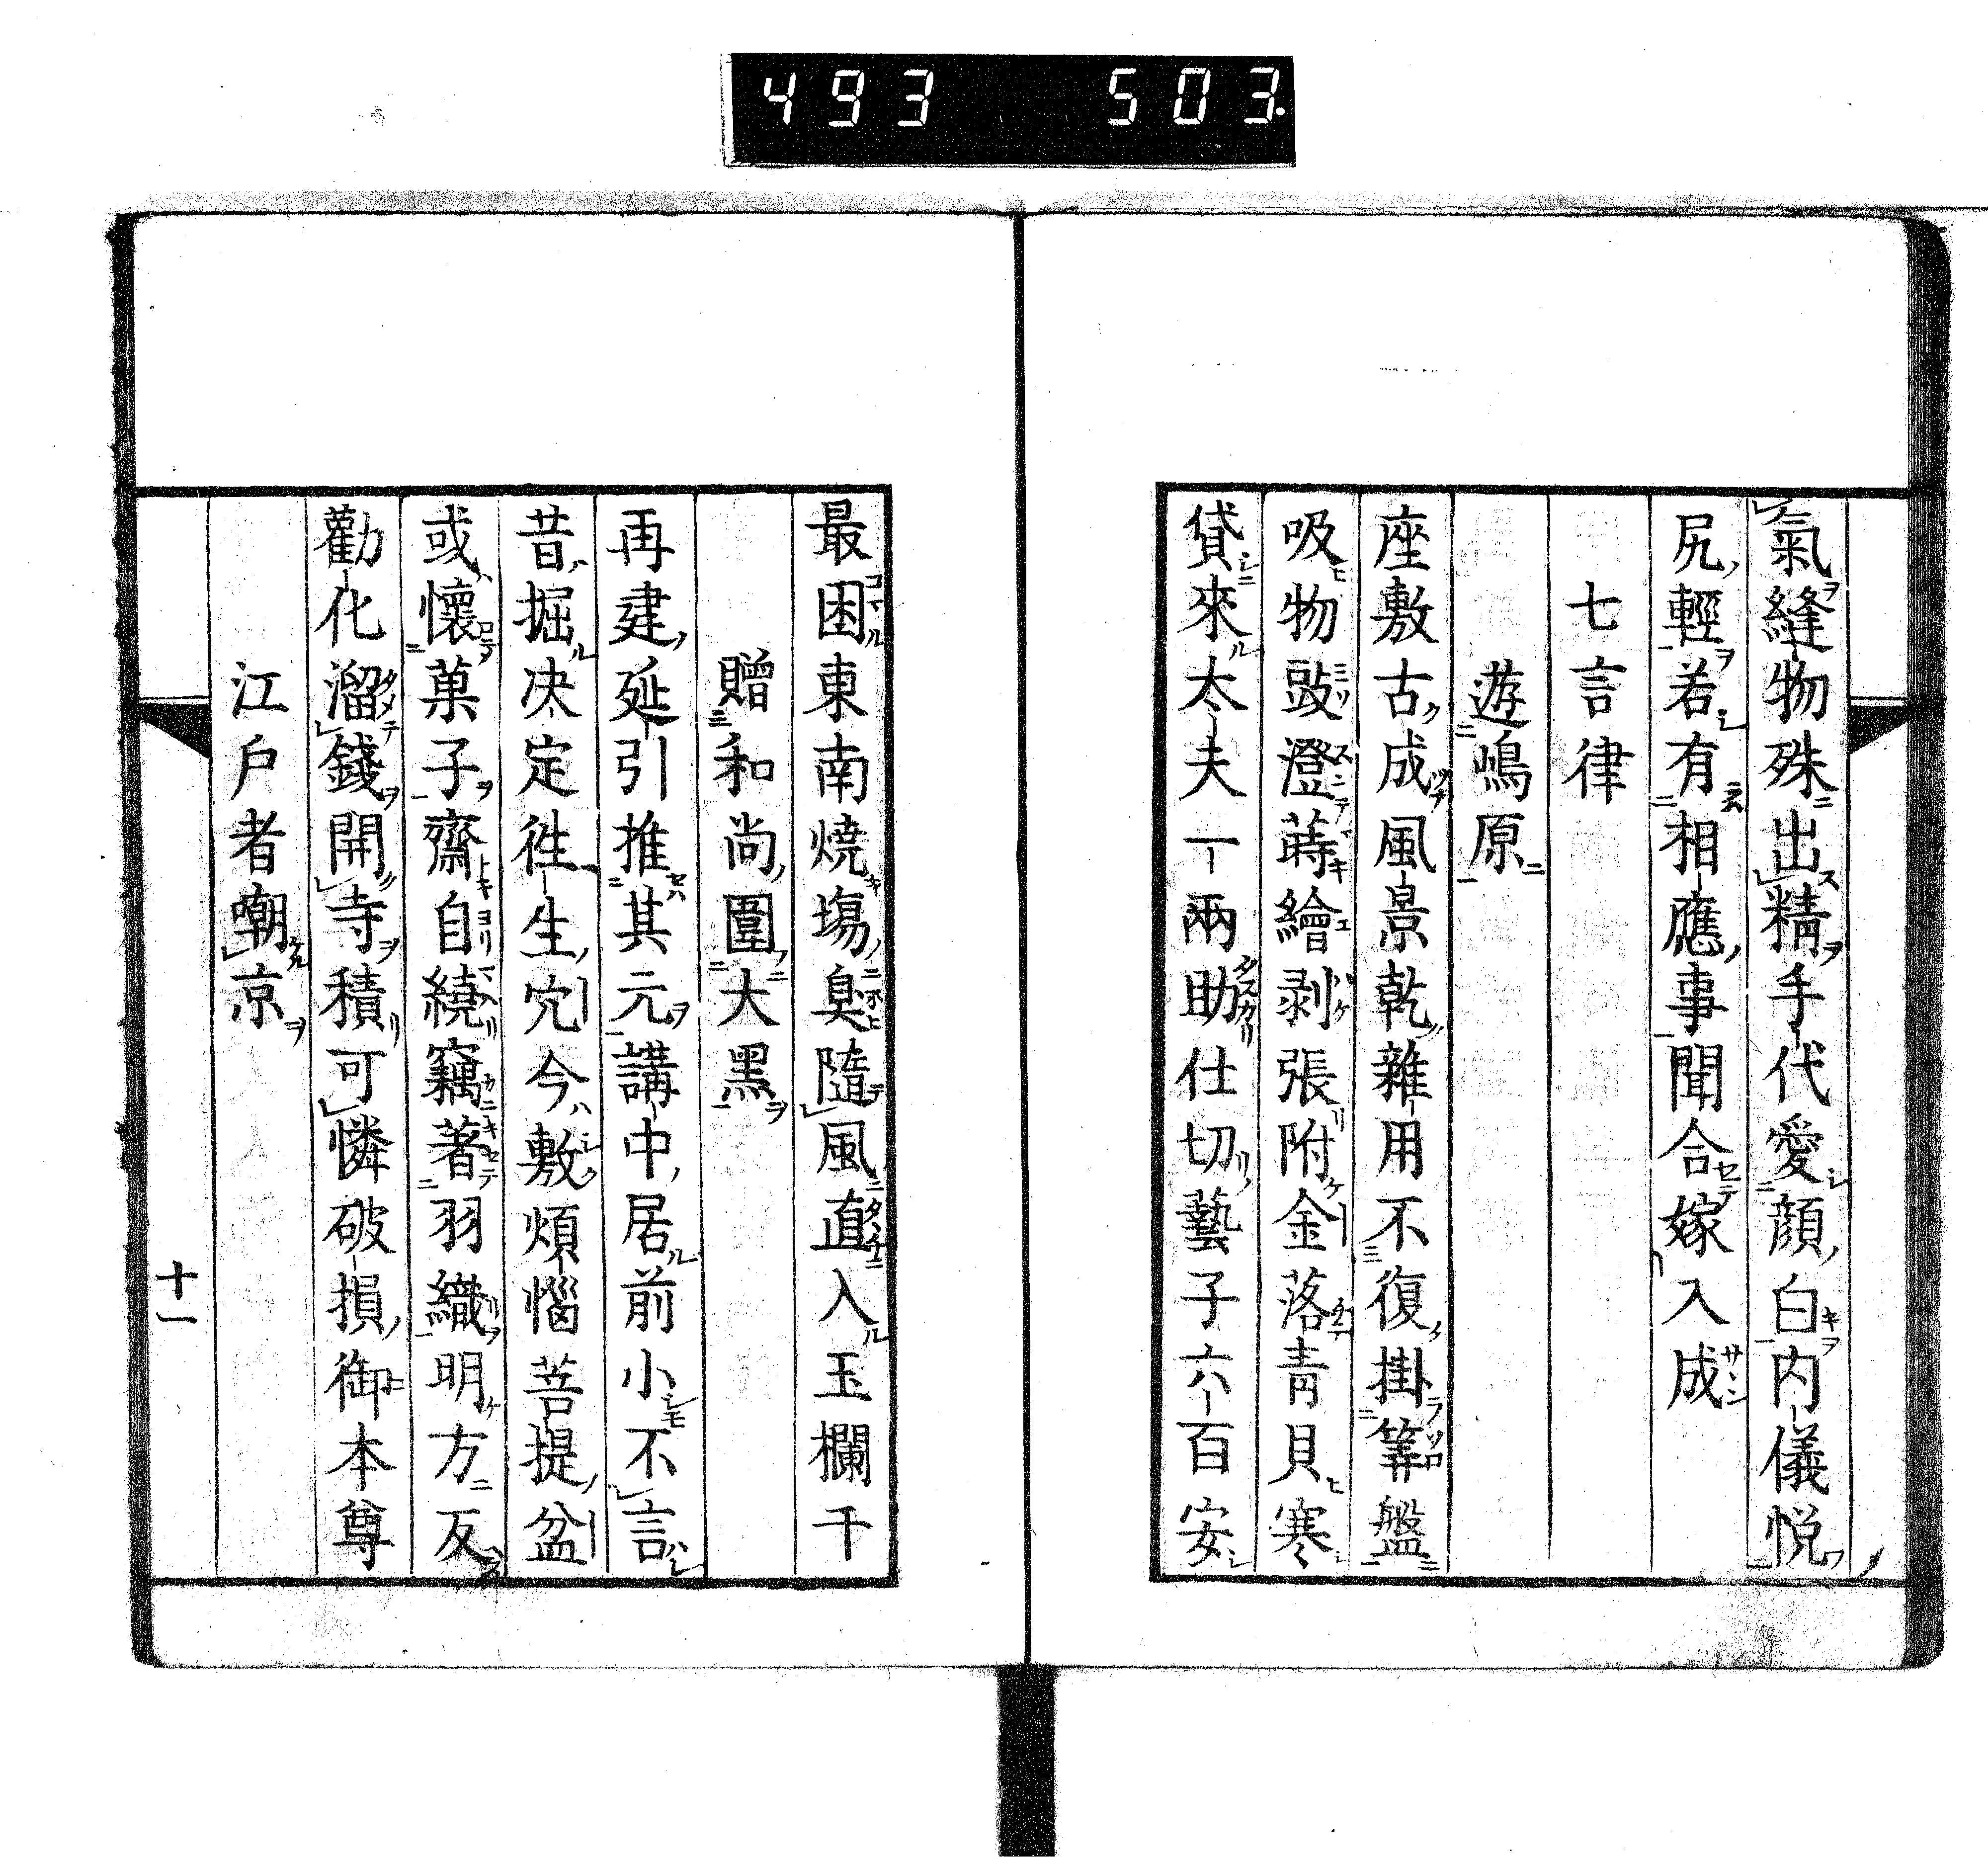 493 503.
氣縫物殊出精手代愛顔白内儀悦
尻輕若有相應事聞合嫁入成
七言律
遊嶋原
座敷古成風景乾雜用不復掛筭盤
吸物豉澄蒔繪剥張附金落青貝寒
貸來太夫一兩助仕切藝子六百安
最困東南燒塲臭隨風直入玉欄干
贈和尚圍大黑
再建延引推其元講中居前小不言
昔掘决定徃生穴今敷煩惱菩提盆
或懷菓子齋自繞竊著羽織明方反
勸化溜錢開寺積可憐破損御本尊
江戸者嘲京
十一